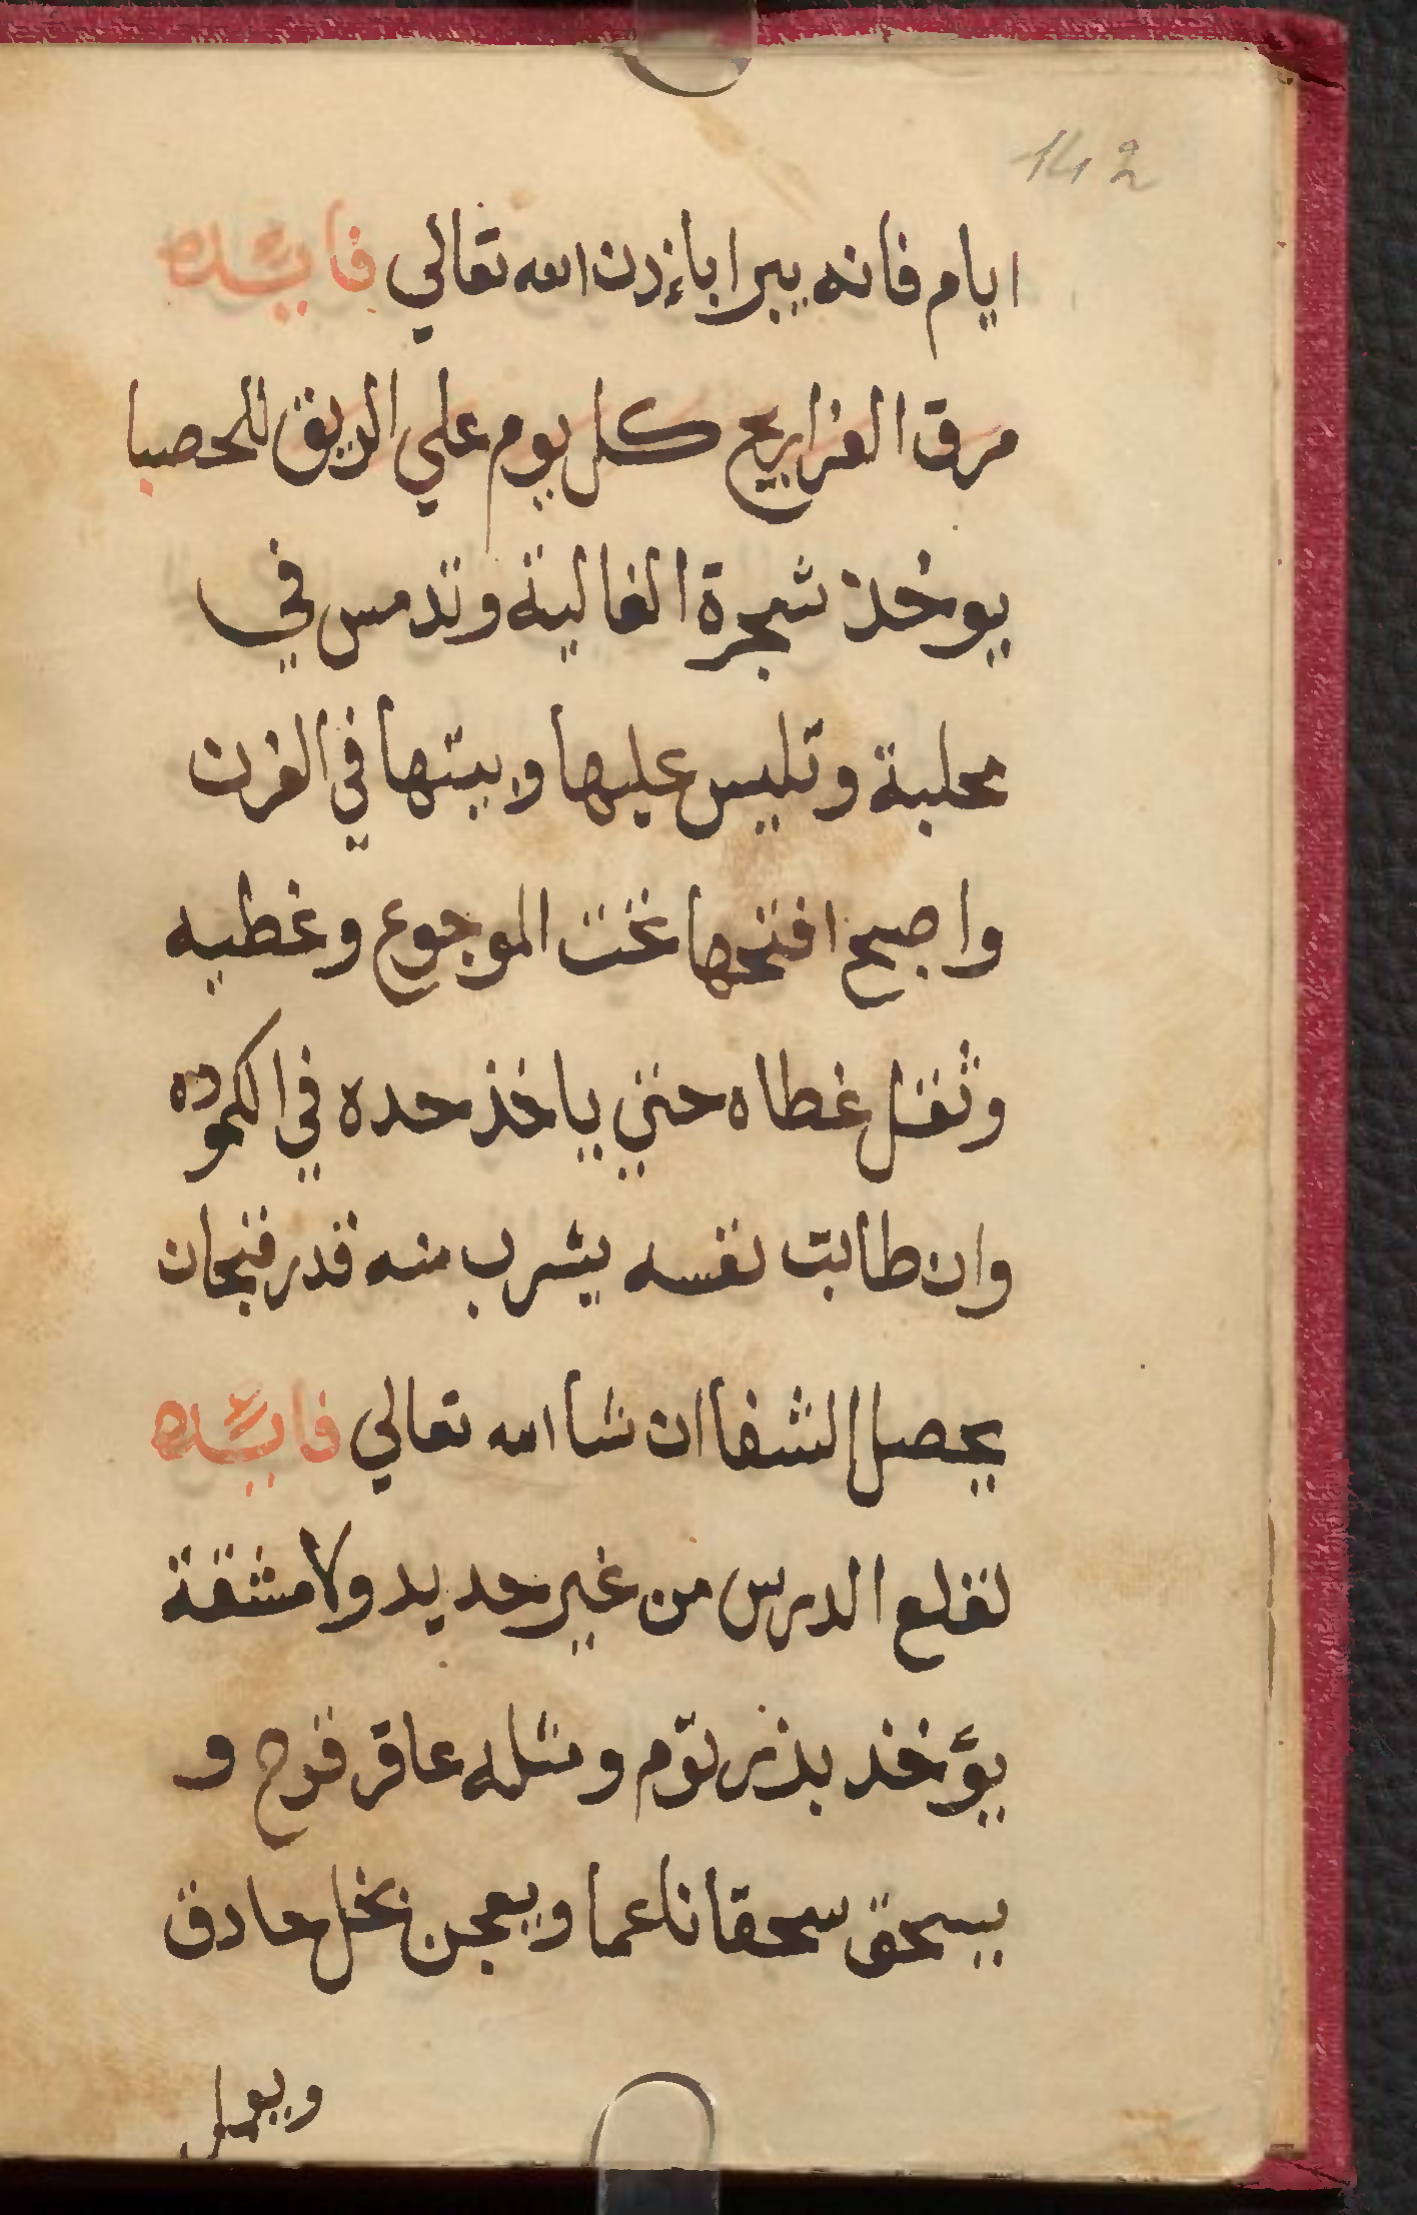 142
ايام فانه يبرا باءذن الله تعالي فايده
مرق الفراريج كل يوم علي الريق للحصبا
يوخذ شجرة الغالية وتدمس في
محلبة وتليس عليها وبيتها في الفرن
واصبح افتحها تحت الموجوع وغطيه
وثقل غطاه حتي ياخذ حده في الكموده
وان طابت نفسه يشرب منه قدر فنجان
يحصل الشفا ان شا الله تعالي فايده
لقلع الدرس من غير حديد ولا مشقة
يؤخذ بذر توم ومثله عاقر قرح و
يسحق سحقا ناعما ويعجن بخل حادق
ويعمل